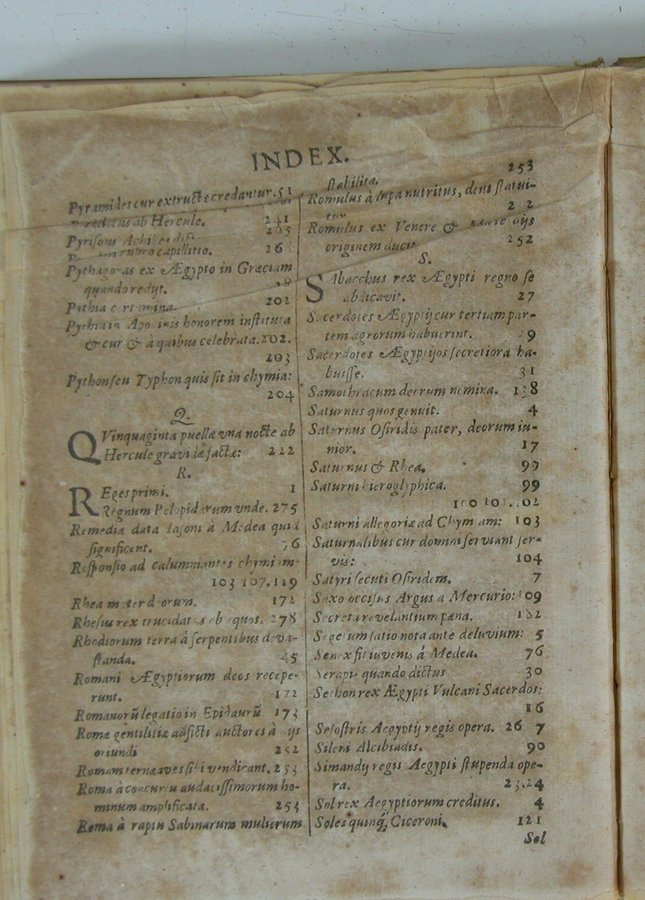 INDEX.
Pyramides cur extructæ credantur. 51
ab Hercule. 241
Pyrisous Achilles dict
capillitio. 26
Pythagoras ex Ægypto in Græciam
quando redyt.
Pythia certamina. 202
Pythia in Apollinis honorem instituta
& cur & à quibus celebrata. 202.
203
Python seu Typhon quis sit in chymia:
204
Q.
QVinquaginta puellæ una nocte ab
Hercule gravidæ factæ: 222
R.
REges primi. 1
Regnum Pelopidarum unde. 275
Remedia data Iasoni à Medea quid
significent. 76
Responsio ad calumniantes chymiam
103 107.119
Rhea mater deorum. 172
Rhesus rex trucidatus ob equos. 278
Rhodiorum terra à serpentibus deva-
standa. 45
Romani Ægyptiorum deos recepe-
runt. 172
Romanorũ legatio in Epidaurũ 173
Romæ gentilitiæ adficti auctores à ijs
oriundi 252
Romam ternæ aves sibi vendicant. 253
Roma à concursu audacissimorum ho-
minum amplificata. 253
Roma à raptu Sabinarum mulierum
stabilita. 253
Romulus à lupa nutritus, deus statui-
tur
Romulus ex Venere & Marte ijs
originem ducit 252
S.
SIbacchus rex Ægypti regno se
abdicavit. 27
Sacerdotes Ægyptij cur tertiam par-
tem agrorum habuerint. 9
Sacerdotes Ægyptijos secretiora ha-
buisse. 31
Samothracum deorum nomina. 138
Saturnus quos genuit. 4
Saturnus Osiridis pater, deorum iu-
nior. 17
Saturnus & Rhea. 99
Saturni hieroglyphica. 99
100 101. 102
Saturni allegoriæ ad Chymiam: 103
Saturnalibus cur domini serviant ser-
vis: 104
Satyri secuti Osiridem. 7
Saxo occisus Argus à Mercurio: 109
Secreta revelantium pœna. 182
Segetum satio nota ante deluvium: 5
Senex fit iuvenis à Medea. 76
Serapis quando dictus 30
Sethon rex Ægypti Vulcani Sacerdos:
16
Sesostris Aegyptij regis opera. 26 7
Sileni Alcibiadis. 90
Simandy regis Aegypti stupenda ope-
ra. 23.24
Sol rex Aegyptiorum creditus. 4
Soles quinq; Ciceroni. 121
Sol